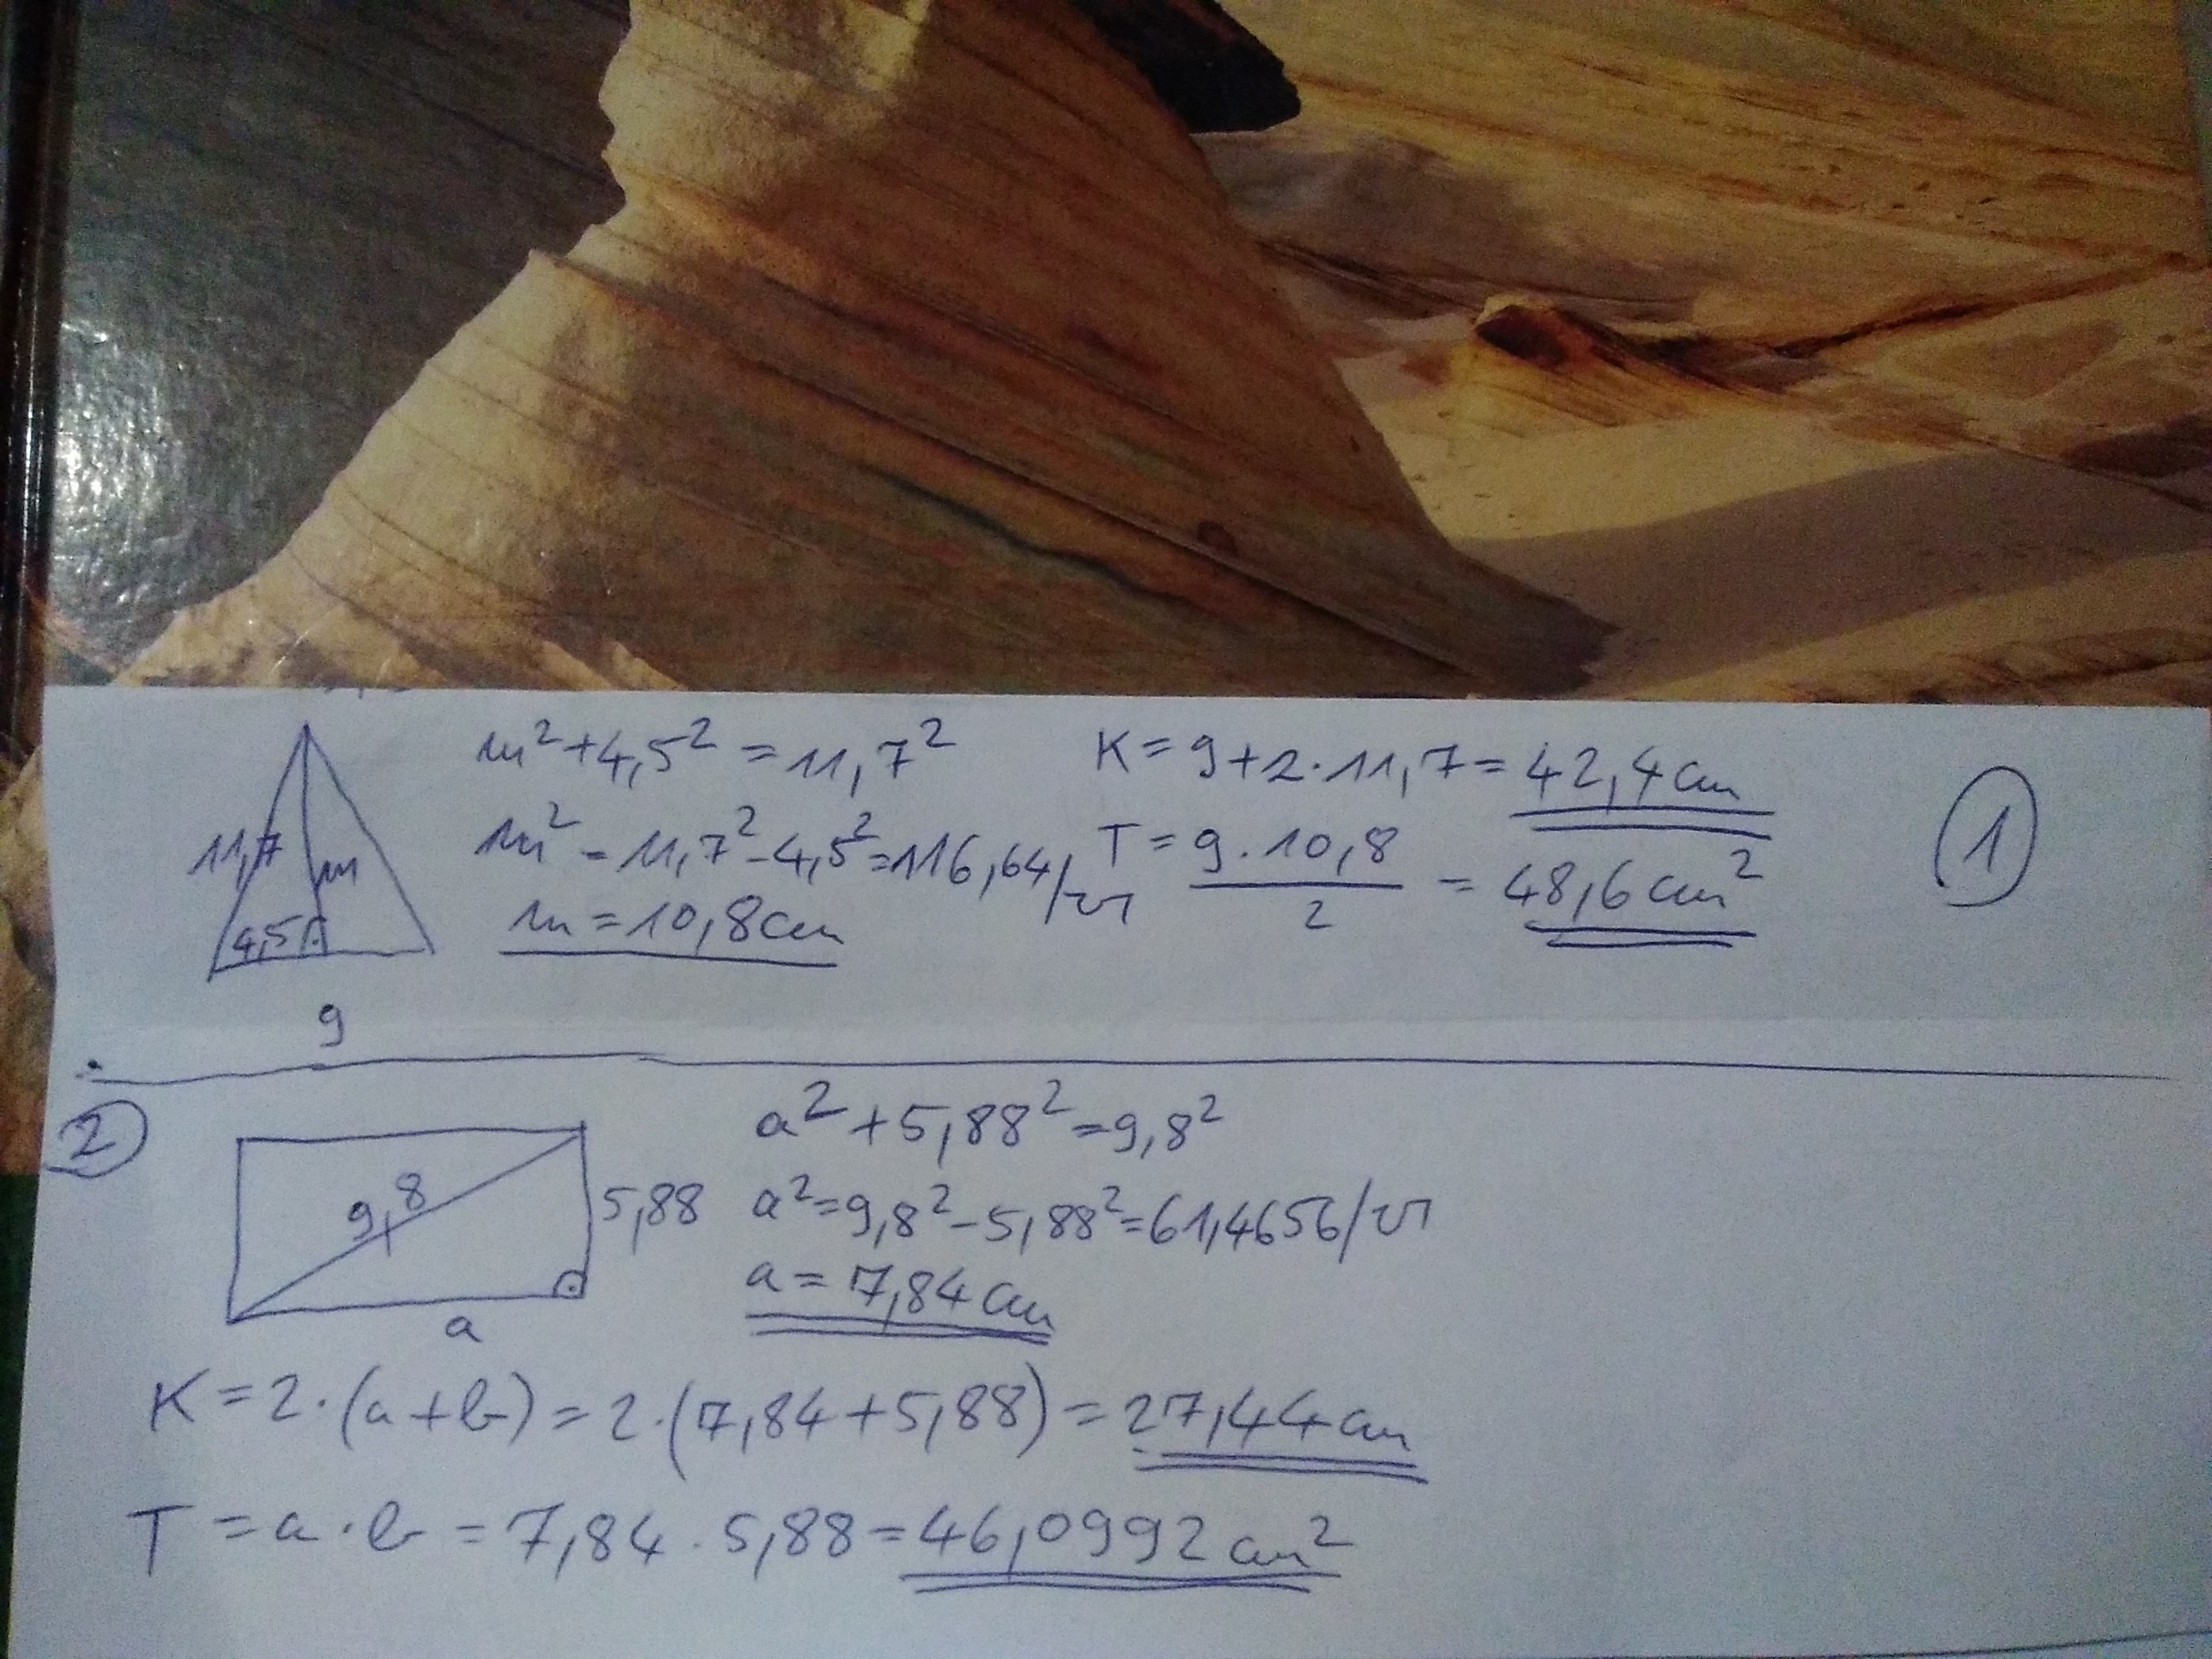 m² + 4,5² = 11,7²
m² = 11,7² - 4,5² = 116,64 /√
m = 10,8 cm
K = 9 + 2 · 11,7 = 42,4 cm
T = 9 · 10,8 / 2 = 48,6 cm²
1
11,7
m
4,5
9
2
9,8
5,88
a
a² + 5,88² = 9,8²
a² = 9,8² - 5,88² = 61,4656 /√
a = 7,84 cm
K = 2 · (a + b) = 2 · (7,84 + 5,88) = 27,44 cm
T = a · b = 7,84 · 5,88 = 46,0992 cm²